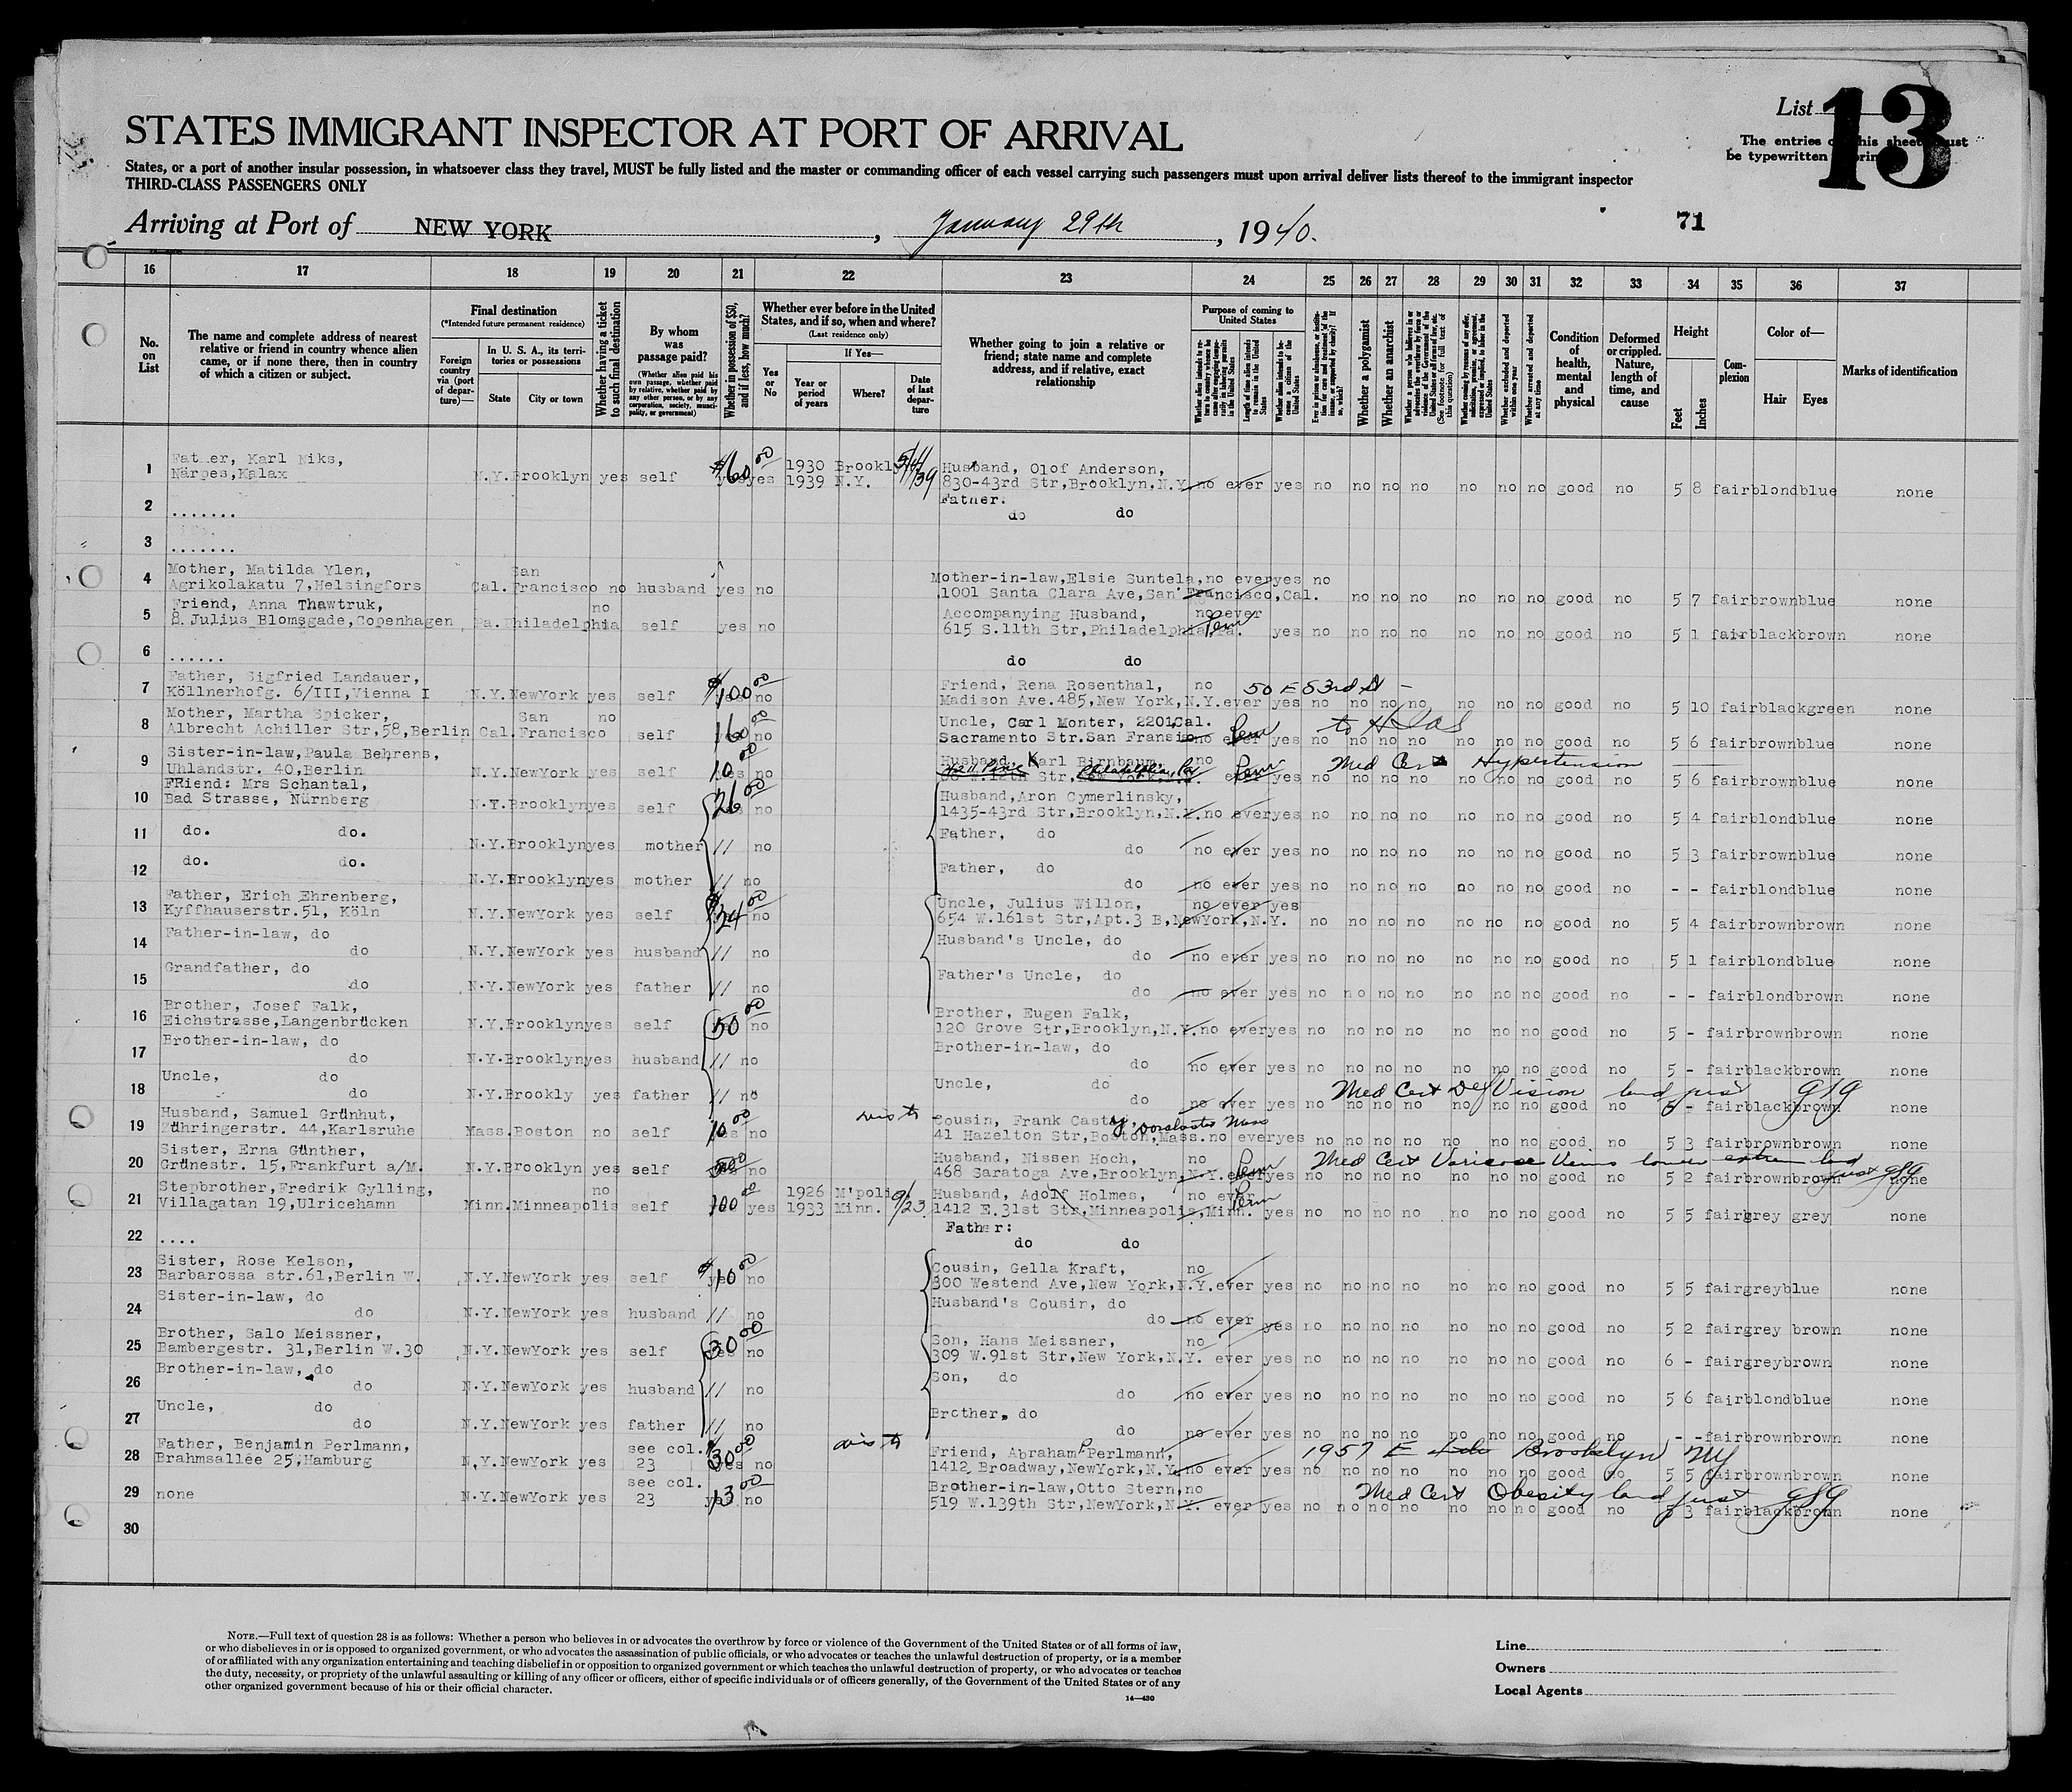 List 13
The entries on this sheet must
be typewritten or printed
STATES IMMIGRANT INSPECTOR AT PORT OF ARRIVAL
States, or a port of another insular possession, in whatsoever class they travel, MUST be fully listed and the master or commanding officer of each vessel carrying such passengers must upon arrival deliver lists thereof to the immigrant inspector
THIRD-CLASS PASSENGERS ONLY
Arriving at Port of NEW YORK, January 29th, 1940.
71
16 17 18 19 20 21 22 23 24 25 26 27 28 29 30 31 32 33 34 35 36 37
No. on List
The name and complete address of nearest relative or friend in country whence alien came, or if none there, then in country of which a citizen or subject.
Final destination
(*Intended future permanent residence)
Foreign country via (port of departure)—
In U. S. A., its territories or possessions
State
City or town
Whether having a ticket to such final destination
By whom was passage paid?
(Whether alien paid his own passage, whether paid by relative, whether paid by any other person, or by any corporation, society, municipality, or government)
Whether in possession of $50, and if less, how much?
Whether ever before in the United States, and if so, when and where?
(Last residence only)
Yes or No
If Yes—
Year or period of years
Where?
Date of last departure
Whether going to join a relative or friend; state name and complete address, and if relative, exact relationship
Purpose of coming to United States
Length of time alien intends to remain in the United States
Whether alien intends to become a citizen of the United States
Whether a polygamist
Whether an anarchist
(See footnote for full text of this question)
Whether excluded and deported within one year
Whether arrested and deported at any time
Condition of health, mental and physical
Deformed or crippled. Nature, length of time, and cause
Height
Feet
Inches
Complexion
Color of—
Hair
Eyes
Marks of identification
1 Father, Karl Niks,
Närpes,Kalax N.Y. Brooklyn yes self $60 00 yes 1930 Brookl
1939 N.Y. Husband, Olof Anderson,
830-43rd Str,Brooklyn,N.Y. no ever yes no no no no no no no good no 5 8 fair blond blue none
2 ....... Father.
do do
3 .......
4 Mother, Matilda Ylen,
Agrikolakatu 7,Helsingfors Cal. San Francisco no husband yes no Mother-in-law,Elsie Suntela, no ever yes no
1001 Santa Clara Ave,San Francisco,Cal. no no no no no no good no 5 7 fair brown blue none
5 Friend, Anna Thawtruk,
8 Julius Blomsgade,Copenhagen Pa. Philadelphia no self yes no Accompanying Husband, no ever
615 S.11th Str,Philadelphia,Pa. Perm yes no no no no no no no good no 5 1 fair black brown none
6 ...... do do
7 Father, Sigfried Landauer,
Köllnerhofg. 6/III,Vienna I N.Y. NewYork yes self $100 00 no Friend, Rena Rosenthal, no 50 E 53rd St
Madison Ave.485,New York,N.Y. ever yes no no no no no no no good no 5 10 fair black green none
8 Mother, Martha Spicker,
Albrecht Achiller Str,58,Berlin Cal. San Francisco no self 16 00 no Uncle, Carl Monter, 2201 Cal.
Sacramento Str.San Fransis no ever Perm yes no no no no no no no good no 5 6 fair brown blue none
9 Sister-in-law,Paula Behrens,
Uhlandstr. 40,Berlin N.Y. NewYork yes self 10 00 no Husband, Karl Birnbaum, no Perm Med Cert Hypertension
Philadelphia, Pa yes no no no no no no no good no 5 6 fair brown blue none
10 FRiend: Mrs Schantal,
Bad Strasse, Nürnberg N.Y. Brooklyn yes self 26 00 no Husband,Aron Cymerlinsky,
1435-43rd Str,Brooklyn,N.Y. no ever yes no no no no no no no good no 5 4 fair blond blue none
11 do. do. N.Y. Brooklyn yes mother // no Father, do
do no ever yes no no no no no no no good no 5 3 fair brown blue none
12 do. do. N.Y. Brooklyn yes mother // no Father, do
do no ever yes no no no no no no no good no - - fair blond blue none
13 Father, Erich Ehrenberg,
Kyffhauserstr.51, Köln N.Y. NewYork yes self $24 00 no Uncle, Julius Willon, no ever yes
654 W.161st Str,Apt.3 B,NewYork,N.Y. no no no no no no no good no 5 4 fair brown brown none
14 Father-in-law, do
do N.Y. NewYork yes husband // no Husband's Uncle, do
do no ever yes no no no no no no no good no 5 1 fair blond blue none
15 Grandfather, do
do N.Y. NewYork yes father // no Father's Uncle, do
do no ever yes no no no no no no no good no - - fair blond brown none
16 Brother, Josef Falk,
Eichstrasse,Langenbrücken N.Y. Brooklyn yes self 50 00 no Brother, Eugen Falk,
120 Grove Str,Brooklyn,N.Y. no ever yes no no no no no no no good no 5 - fair brown brown none
17 Brother-in-law, do
do N.Y. Brooklyn yes husband // no Brother-in-law, do
do no ever yes no no no no no no no good no 5 - fair black brown none
18 Uncle, do
do N.Y. Brookly yes father // no Uncle, do Med Cert Def Vision
do no ever yes no no no no no no no good no 5 - fair black brown none
19 Husband, Samuel Grünhut,
Zühringerstr. 44,Karlsruhe Mass. Boston no self 10 00 no Cousin, Frank Castay, Dorchester Mass
41 Hazelton Str,Boston,Mass. no ever yes no no no no no no no good no 5 3 fair brown brown none
20 Sister, Erna Günther,
Grünestr. 15,Frankfurt a/M. N.Y. Brooklyn yes self no Husband, Nissen Hoch, no Perm Med Cert Varicose Veins lower
468 Saratoga Ave,Brooklyn,N.Y. ever yes no no no no no no no good no 5 2 fair brown brown none
21 Stepbrother,Fredrik Gylling,
Villagatan 19,Ulricehamn Minn. Minneapolis no self 100 00 yes 1926 M'polis
1933 Minn. 9/23 Husband, Adolf Holmes, no ever Perm
1412 E.31st Str,Minneapolis,Minn. yes no no no no no no no good no 5 5 fair grey grey none
22 .... Father:
do do
23 Sister, Rose Kelson,
Barbarossa str.61,Berlin W. N.Y. NewYork yes self $10 00 no Cousin, Gella Kraft, no
300 Westend Ave,New York,N.Y. ever yes no no no no no no no good no 5 5 fair grey blue none
24 Sister-in-law, do
do N.Y. NewYork yes husband // no Husband's Cousin, do
do no ever yes no no no no no no no good no 5 2 fair grey brown none
25 Brother, Salo Meissner,
Bambergestr. 31,Berlin W.30 N.Y. NewYork yes self 30 00 no Son, Hans Meissner, no
309 W.91st Str,New York,N.Y. ever yes no no no no no no no good no 6 - fair grey brown none
26 Brother-in-law, do
do N.Y. NewYork yes husband // no Son, do
do no ever yes no no no no no no no good no 5 6 fair blond blue none
27 Uncle, do
do N.Y. NewYork yes father // no Brother, do
do no ever yes no no no no no no no good no - - fair brown brown none
28 Father, Benjamin Perlmann,
Brahmsallee 25,Hamburg N.Y. NewYork yes see col. 23 30 00 no Friend, Abraham P. Perlmann, 1957 E Brooklyn NY
1412 Broadway,NewYork,N.Y. no ever yes no no no no no no no good no 5 5 fair brown brown none
29 none N.Y. NewYork yes see col. 23 13 00 no Brother-in-law,Otto Stern, no Med Cert Obesity
519 W.139th Str,NewYork,N.Y. ever yes no no no no no no no good no 5 3 fair black brown none
30
NOTE.—Full text of question 28 is as follows: Whether a person who believes in or advocates the overthrow by force or violence of the Government of the United States or of all forms of law,
or who disbelieves in or is opposed to organized government, or who advocates the assassination of public officials, or who advocates or teaches the unlawful destruction of property, or is a member
of or affiliated with any organization entertaining and teaching disbelief in or opposition to organized government or which teaches the unlawful destruction of property, or who advocates or teaches
the duty, necessity, or propriety of the unlawful assaulting or killing of any officer or officers, either of specific individuals or of officers generally, of the Government of the United States or of any
other organized government because of his or their official character.
14—430
Line
Owners
Local Agents